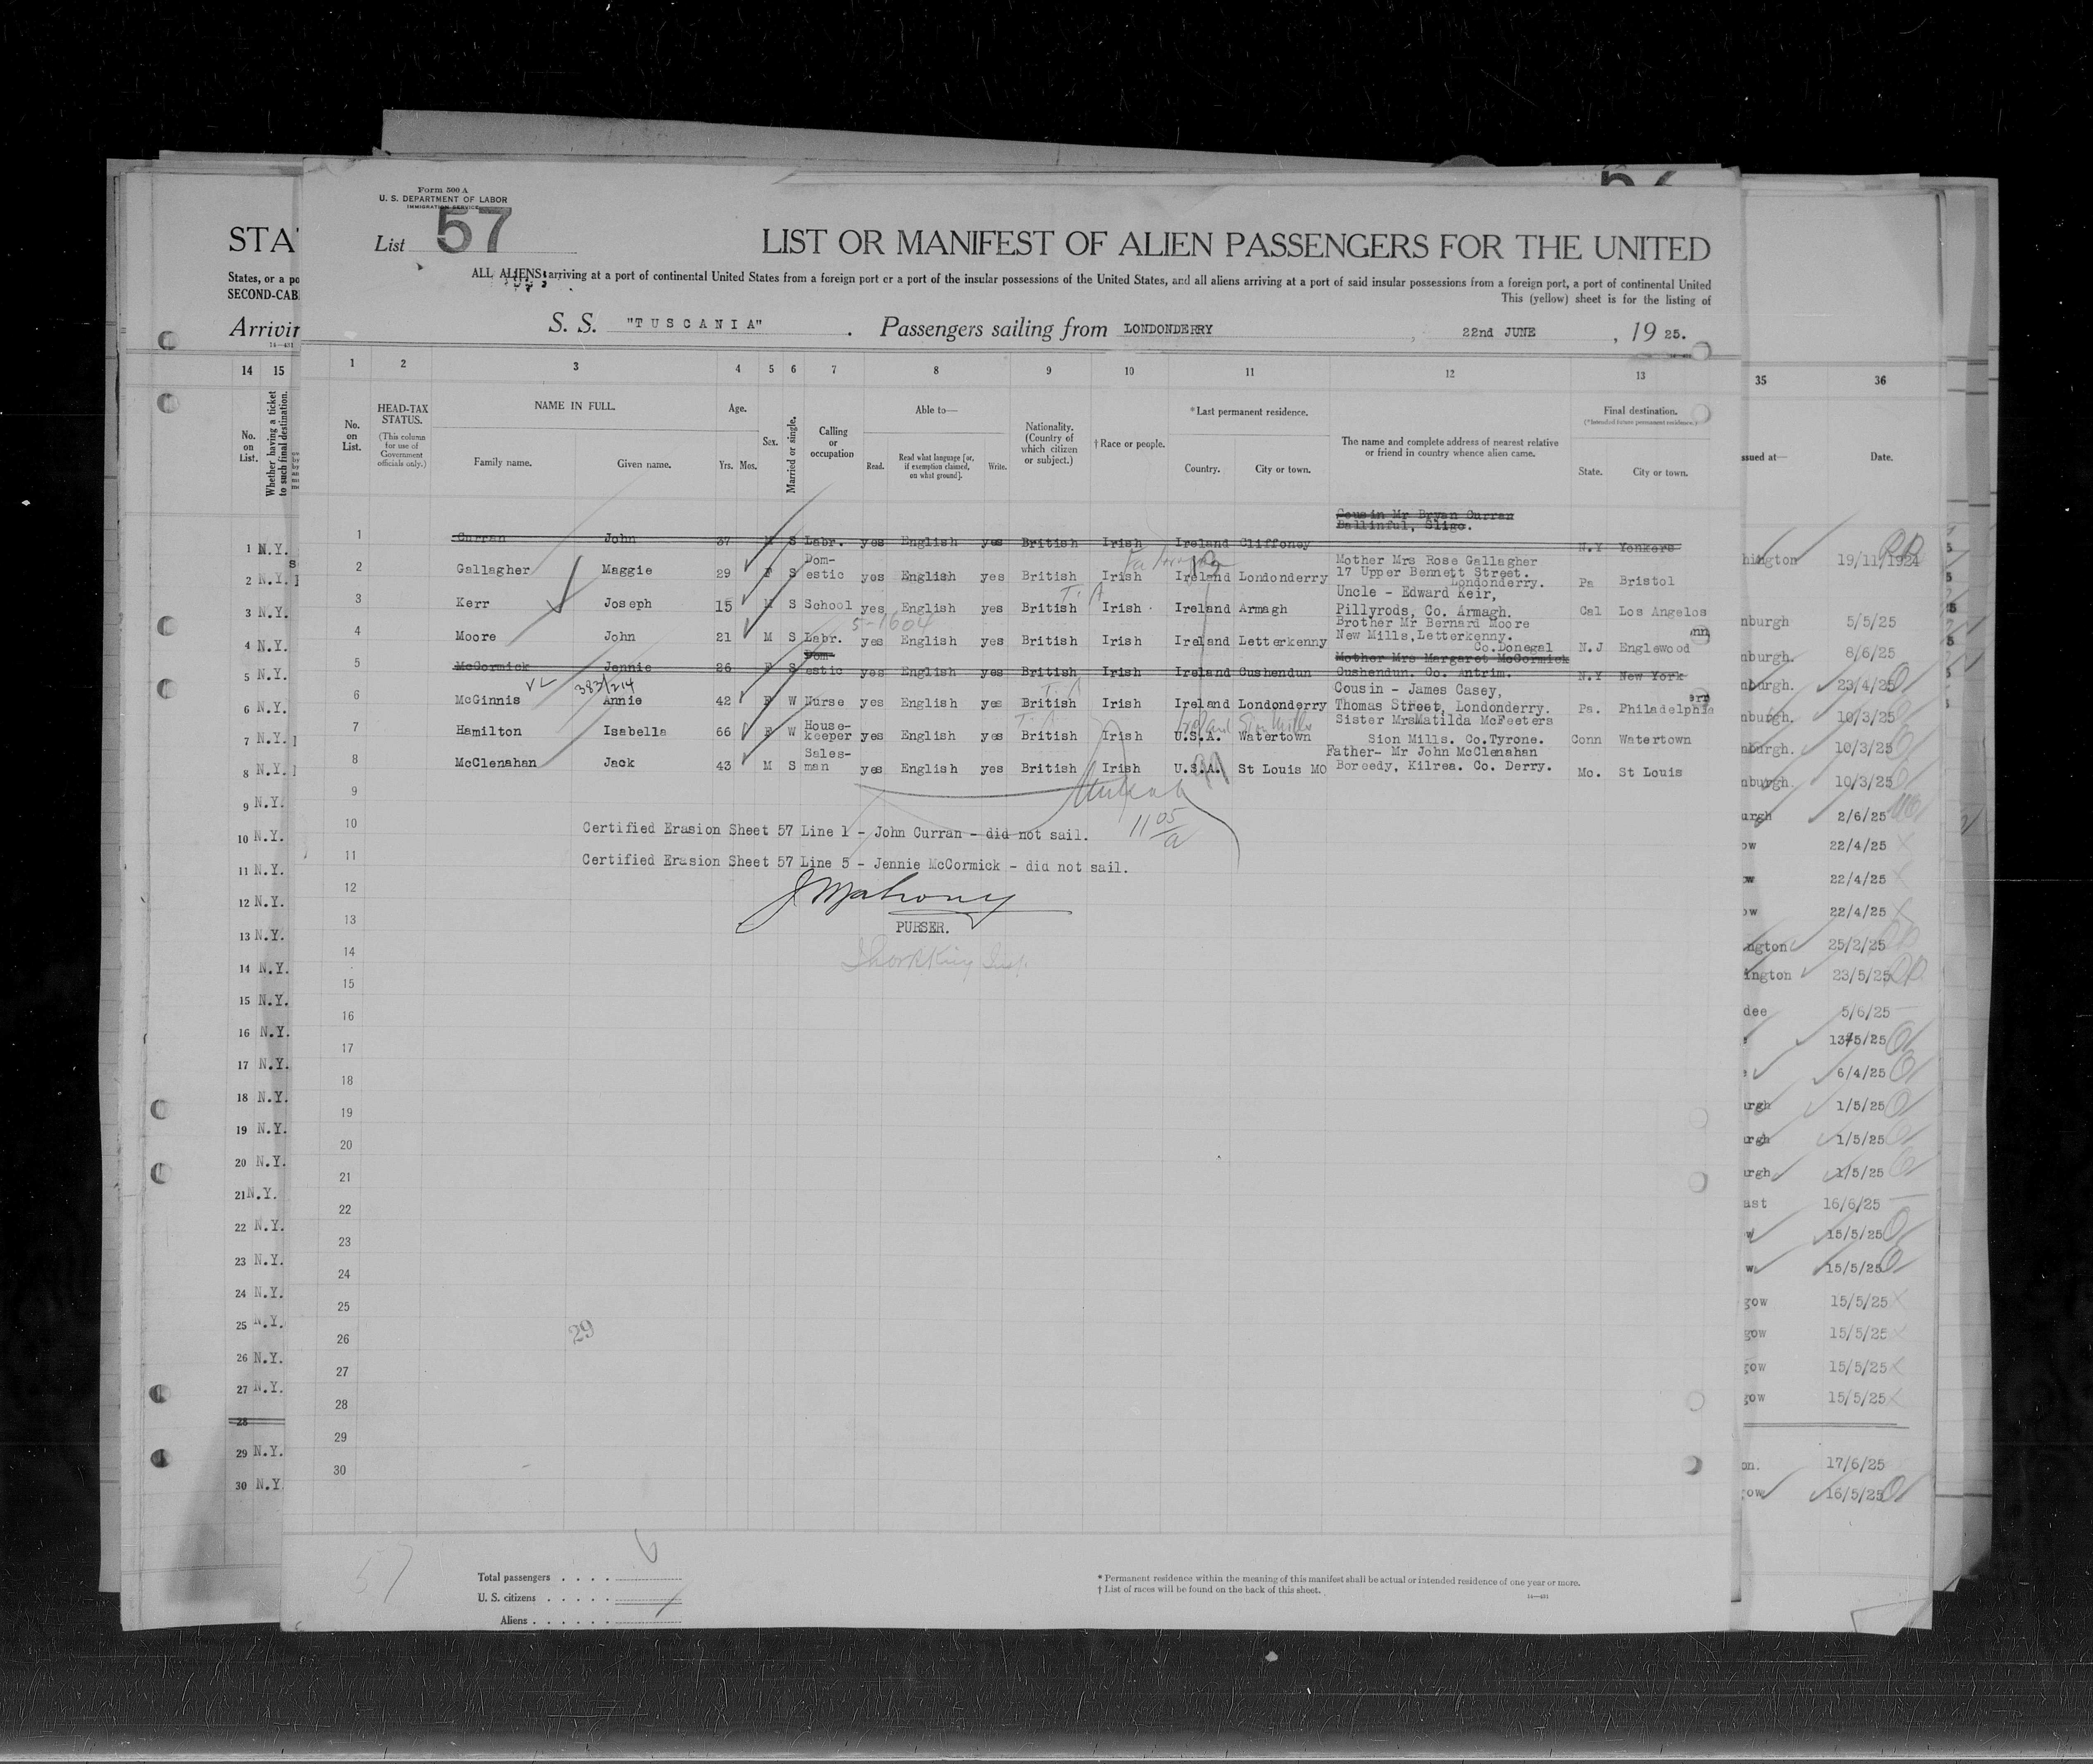 Form 500 A
U. S. DEPARTMENT OF LABOR
IMMIGRATION SERVICE
List 57
LIST OR MANIFEST OF ALIEN PASSENGERS FOR THE UNITED
ALL ALIENS arriving at a port of continental United States from a foreign port or a port of the insular possessions of the United States, and all aliens arriving at a port of said insular possessions from a foreign port, a port of continental United
This (yellow) sheet is for the listing of
S. S. "TUSCANIA" . Passengers sailing from LONDONDERRY , 22nd JUNE , 19 25.
1 2 3 4 5 6 7 8 9 10 11 12 13
No. on List.
HEAD-TAX STATUS.
(This column for use of Government officials only.)
NAME IN FULL.
Family name. Given name.
Age.
Yrs. Mos.
Sex.
Married or single.
Calling or occupation
Able to—
Read. Read what language [or, if exemption claimed, on what ground]. Write.
Nationality. (Country of which citizen or subject.)
† Race or people.
* Last permanent residence.
Country. City or town.
The name and complete address of nearest relative or friend in country whence alien came.
Final destination.
(*Intended future permanent residence.)
State. City or town.
1 Curran John 37 M S Labr. yes English yes British Irish Ireland Cliffoney Cousin Mr Bryan Curran Ballinful, Sligo. N.Y Yonkers
2 Gallagher Maggie 29 F S Dom-estic yes English yes British Irish Ireland Londonderry Mother Mrs Rose Gallagher 17 Upper Bennett Street. Londonderry. Pa Bristol
3 Kerr Joseph 15 M S School yes English yes British Irish Ireland Armagh Uncle - Edward Keir, Pillyrods, Co. Armagh. Cal Los Angelos
4 Moore John 21 M S Labr. yes English yes British Irish Ireland Letterkenny Brother Mr Bernard Moore New Mills, Letterkenny. Co.Donegal N.J Englewood
5 McCormick Jennie 26 F S Dom-estic yes English yes British Irish Ireland Cushendun Mother Mrs Margaret McCormick Cushendun. Co. Antrim. N.Y New York
6 McGinnis Annie 42 F W Nurse yes English yes British Irish Ireland Londonderry Cousin - James Casey, Thomas Street, Londonderry. Pa. Philadelphia
7 Hamilton Isabella 66 F W House-keeper yes English yes British Irish U.S.A. Watertown Sister MrsMatilda McFeeters Sion Mills. Co.Tyrone. Conn Watertown
8 McClenahan Jack 43 M S Sales-man yes English yes British Irish U.S.A. St Louis MO Father- Mr John McClenahan Boreedy, Kilrea. Co. Derry. Mo. St Louis
5-1604
383/214
Ireland Sion Mills
9
10 Certified Erasion Sheet 57 Line 1 - John Curran - did not sail.
11 Certified Erasion Sheet 57 Line 5 - Jennie McCormick - did not sail.
12 J Mahony
13 PURSER.
14
15
16
17
18
19
20
21
22
23
24
25
26 29
27
28
29
30
57
Total passengers
U. S. citizens
Aliens
* Permanent residence within the meaning of this manifest shall be actual or intended residence of one year or more.
† List of races will be found on the back of this sheet.
14—431
STA
States, or a po
SECOND-CAB
Arrivin
14 15
No. on List.
Whether having a ticket to such final destination.
1 N.Y.
2 N.Y.
3 N.Y.
4 N.Y.
5 N.Y.
6 N.Y.
7 N.Y.
8 N.Y.
9 N.Y.
10 N.Y.
11 N.Y.
12 N.Y.
13 N.Y.
14 N.Y.
15 N.Y.
16 N.Y.
17 N.Y.
18 N.Y.
19 N.Y.
20 N.Y.
21 N.Y.
22 N.Y.
23 N.Y.
24 N.Y.
25 N.Y.
26 N.Y.
27 N.Y.
28
29 N.Y.
30 N.Y
35 36
ssued at— Date.
hington 19/11/1924
nburgh 5/5/25
nburgh. 8/6/25
nburgh. 23/4/25
nburgh. 10/3/25
nburgh. 10/3/25
nburgh. 10/3/25
urgh 2/6/25
ow 22/4/25
ow 22/4/25
ow 22/4/25
ngton 25/2/25
ington 23/5/25
dee 5/6/25
13/5/25
6/4/25
urgh 1/5/25
urgh 1/5/25
urgh 1/5/25
ast 16/6/25
w 15/5/25
w 15/5/25
gow 15/5/25
gow 15/5/25
gow 15/5/25
gow 15/5/25
on. 17/6/25
gow 16/5/25